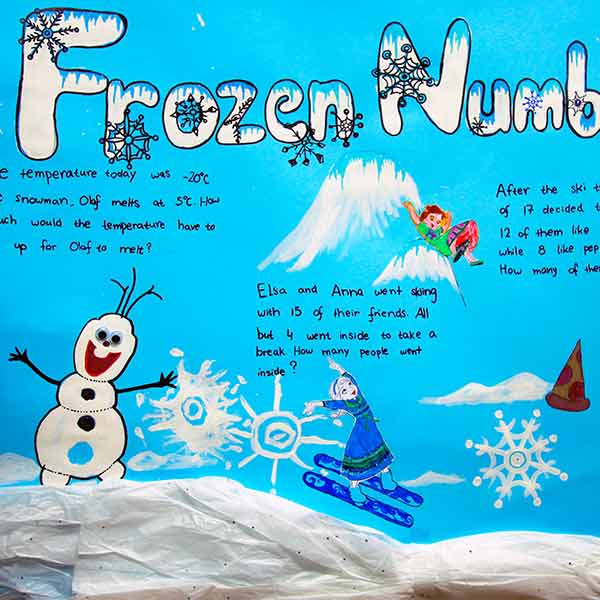 Frozen Numb
e temperature today was -20°C
e snowman, Olaf melts at 5°C. How
uch would the temperature have to
up for Olaf to melt?
Elsa and Anna went skiing
with 15 of their friends. All
but 4 went inside to take a
break. How many people went
inside?
After the ski t
of 17 decided t
12 of them like
while 8 like pep
How many of the